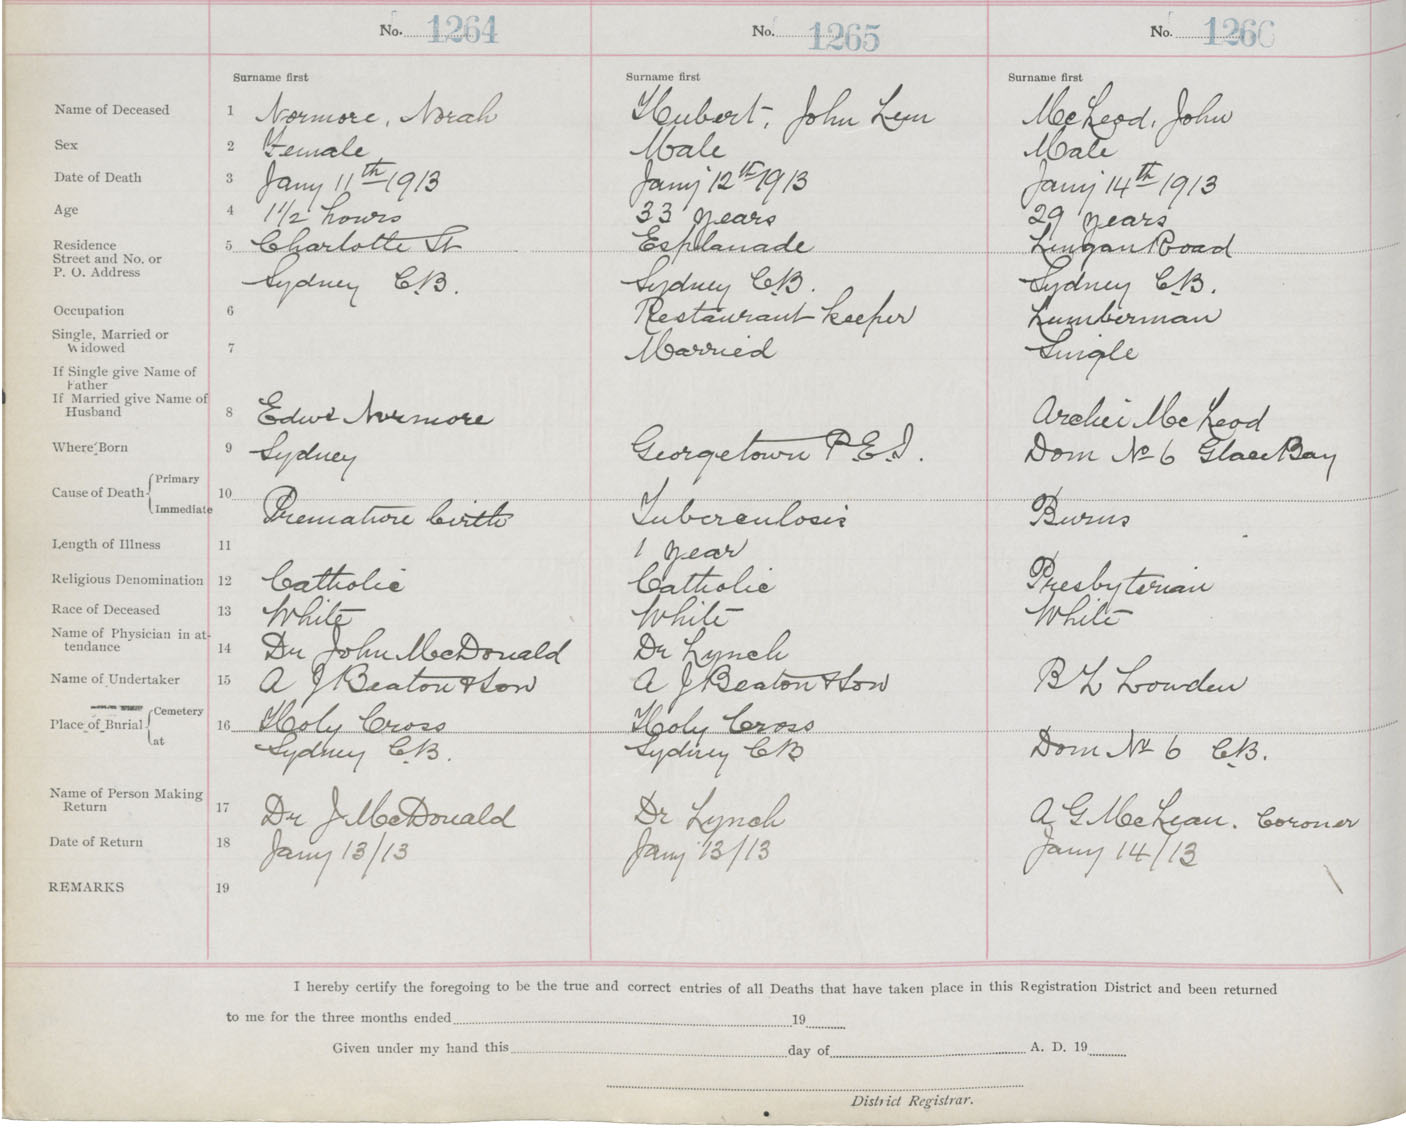 No. 1264 No. 1265 No. 1266
Surname first Surname first Surname first
Name of Deceased 1 Normore, Norah Hubert, John Lem McLeod, John
Sex 2 Female Male Male
Date of Death 3 Jany 11th 1913 Jany 12th 1913 Jany 14th 1913
Age 4 1 1/2 hours 33 years 29 years
Residence 5 Charlotte St Esplanade Lingan Road
Street and No. or
P. O. Address Sydney C.B. Sydney C.B. Sydney C.B.
Occupation 6 Restaurant keeper Lumberman
Single, Married or
Widowed 7 Married Single
If Single give Name of
Father
If Married give Name of
Husband 8 Edwd Normore Archie McLeod
Where Born 9 Sydney Georgetown P.E.I. Dom No 6 Glace Bay
Cause of Death Primary 10
Immediate Premature birth Tuberculosis Burns
Length of Illness 11 1 year
Religious Denomination 12 Catholic Catholic Presbyterian
Race of Deceased 13 White White White
Name of Physician in at-
tendance 14 Dr John McDonald Dr Lynch
Name of Undertaker 15 A J Beaton & Son A J Beaton & Son B L Lowden
Place of Burial Cemetery 16 Holy Cross Holy Cross
at Sydney C.B. Sydney CB Dom No 6 C.B.
Name of Person Making
Return 17 Dr J McDonald Dr Lynch A G McLean. Coroner
Date of Return 18 Jany 13/13 Jany 13/13 Jany 14/13
REMARKS 19
I hereby certify the foregoing to be the true and correct entries of all Deaths that have taken place in this Registration District and been returned
to me for the three months ended 19
Given under my hand this day of A. D. 19
District Registrar.